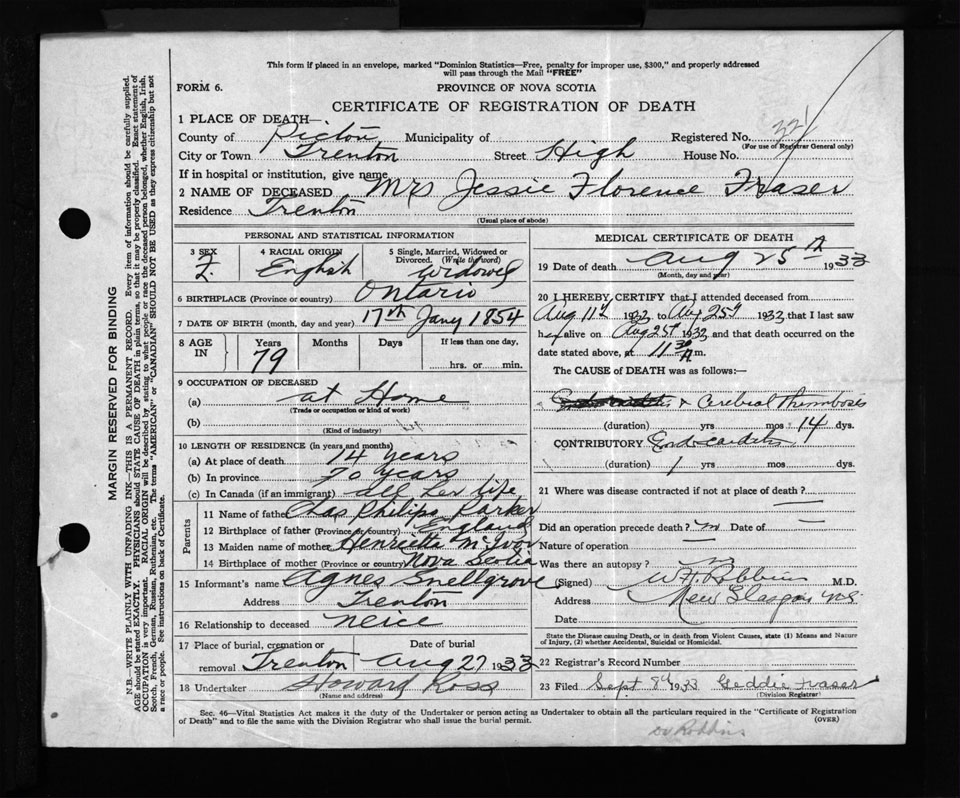 This form if placed in an envelope, marked "Dominion Statistics—Free, penalty for improper use, $300," and properly addressed
will pass through the Mail "FREE"
FORM 6.
PROVINCE OF NOVA SCOTIA
CERTIFICATE OF REGISTRATION OF DEATH
1 PLACE OF DEATH—
County of Pictou Municipality of Registered No.
(For use of Registrar General only)
City or Town Trenton Street High House No.
If in hospital or institution, give name
2 NAME OF DECEASED Mrs Jessie Florence Fraser
Residence Trenton
(Usual place of abode)
PERSONAL AND STATISTICAL INFORMATION
3 SEX F.
4 RACIAL ORIGIN English
5 Single, Married, Widowed or
Divorced. (Write the word)
Widowed
6 BIRTHPLACE (Province or country) Ontario
7 DATE OF BIRTH (month, day and year) 17th Jany 1854
8 AGE IN Years Months Days If less than one day,
79 hrs. or min.
9 OCCUPATION OF DECEASED
(a) at Home
(Trade or occupation or kind of work)
(b)
(Kind of industry)
10 LENGTH OF RESIDENCE (in years and months)
(a) At place of death 14 years
(b) In province 70 years
(c) In Canada (if an immigrant) all her life
Parents
11 Name of father Chas Philips Parker
12 Birthplace of father (Province or country) England
13 Maiden name of mother Henrietta
14 Birthplace of mother (Province or country) Nova Scotia
15 Informant's name Agnes Snellgrove
Address Trenton
16 Relationship to deceased neice
17 Place of burial, cremation or Date of burial
removal Trenton Aug 27 1933
18 Undertaker Howard Ross
(Name and address)
MEDICAL CERTIFICATE OF DEATH
19 Date of death Aug 25th 1933
(Month, day and year)
20 I HEREBY CERTIFY that I attended deceased from
Aug 11th 1933 to Aug 25th 1933 that I last saw
her alive on Aug 25th 1933 and that death occurred on the
date stated above, at 11.30 A m.
The CAUSE of DEATH was as follows:—
Cerebral Thrombosis
(duration) yrs mos 14 dys.
CONTRIBUTORY Endocarditis
(duration) 1 yrs mos dys.
21 Where was disease contracted if not at place of death?
Did an operation precede death? no Date of
Nature of operation
Was there an autopsy? no
(Signed) W.H. Robbins M.D.
Address New Glasgow N.S.
Date
State the Disease causing Death, or in death from Violent Causes, state (1) Means and Nature
of Injury, (2) whether Accidental, Suicidal or Homicidal.
22 Registrar's Record Number
23 Filed Sept 8th 1933 Geddie Fraser
(Division Registrar)
Sec. 46—Vital Statistics Act makes it the duty of the Undertaker or person acting as Undertaker to obtain all the particulars required in the "Certificate of Registration
of Death" and to file the same with the Division Registrar who shall issue the burial permit.
(OVER)
Dr Robbins
MARGIN RESERVED FOR BINDING
N.B.—WRITE PLAINLY WITH UNFADING INK—THIS IS A PERMANENT RECORD. Every item of information should be carefully supplied.
AGE should be stated EXACTLY. PHYSICIANS should STATE CAUSE OF DEATH in plain terms, so that it may be properly classified. Exact statement of
OCCUPATION is very important. RACIAL ORIGIN will be described by stating to what people or race the deceased person belonged, whether English, Irish,
Scotch, French, German, Russian, Ruthenian, etc. The terms "AMERICAN" or "CANADIAN" SHOULD NOT BE USED as they express citizenship but not
a race or people. See instructions on back of Certificate.